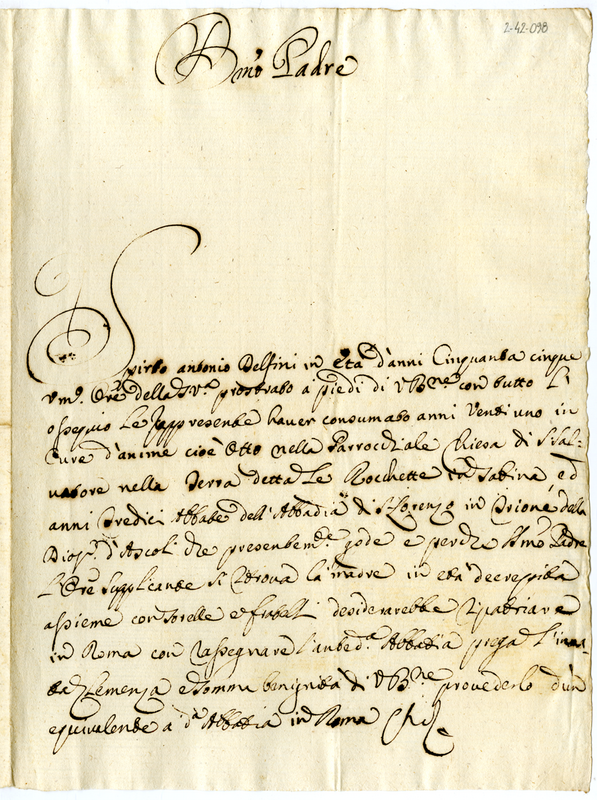 2-42-098
Bmo Padre
Spirito Antonio Delfini in età d'anni Cinquanta cinque
Vmo. Ore della S.V.a prostrato a piedi di V Bne con tutto l'
ossequio Le rappresenta haver consumato anni Venti uno in
Cure d'anime cioè Otto nella Parrocchiale Chiesa di S. Sal-
vatore nella Terra detta Le Rocchette in Sabina, ed
anni Tredici Abbate dell'Abbadia di S. Lorenzo in della
Diosi. d'Ascoli che presentem.e gode e perche Bmo Padre
l'Ore Supplicante si ritrova la madre in età decrepita
assieme con sorelle e fratelli desiderarebbe ripatriare
in Roma con rassegnare l'anted.a Abbadia prega l'inna-
ta Clemenza e somma benignità di V Bne. provederlo d'un
equivalente a d.a Abbadia in Roma Che